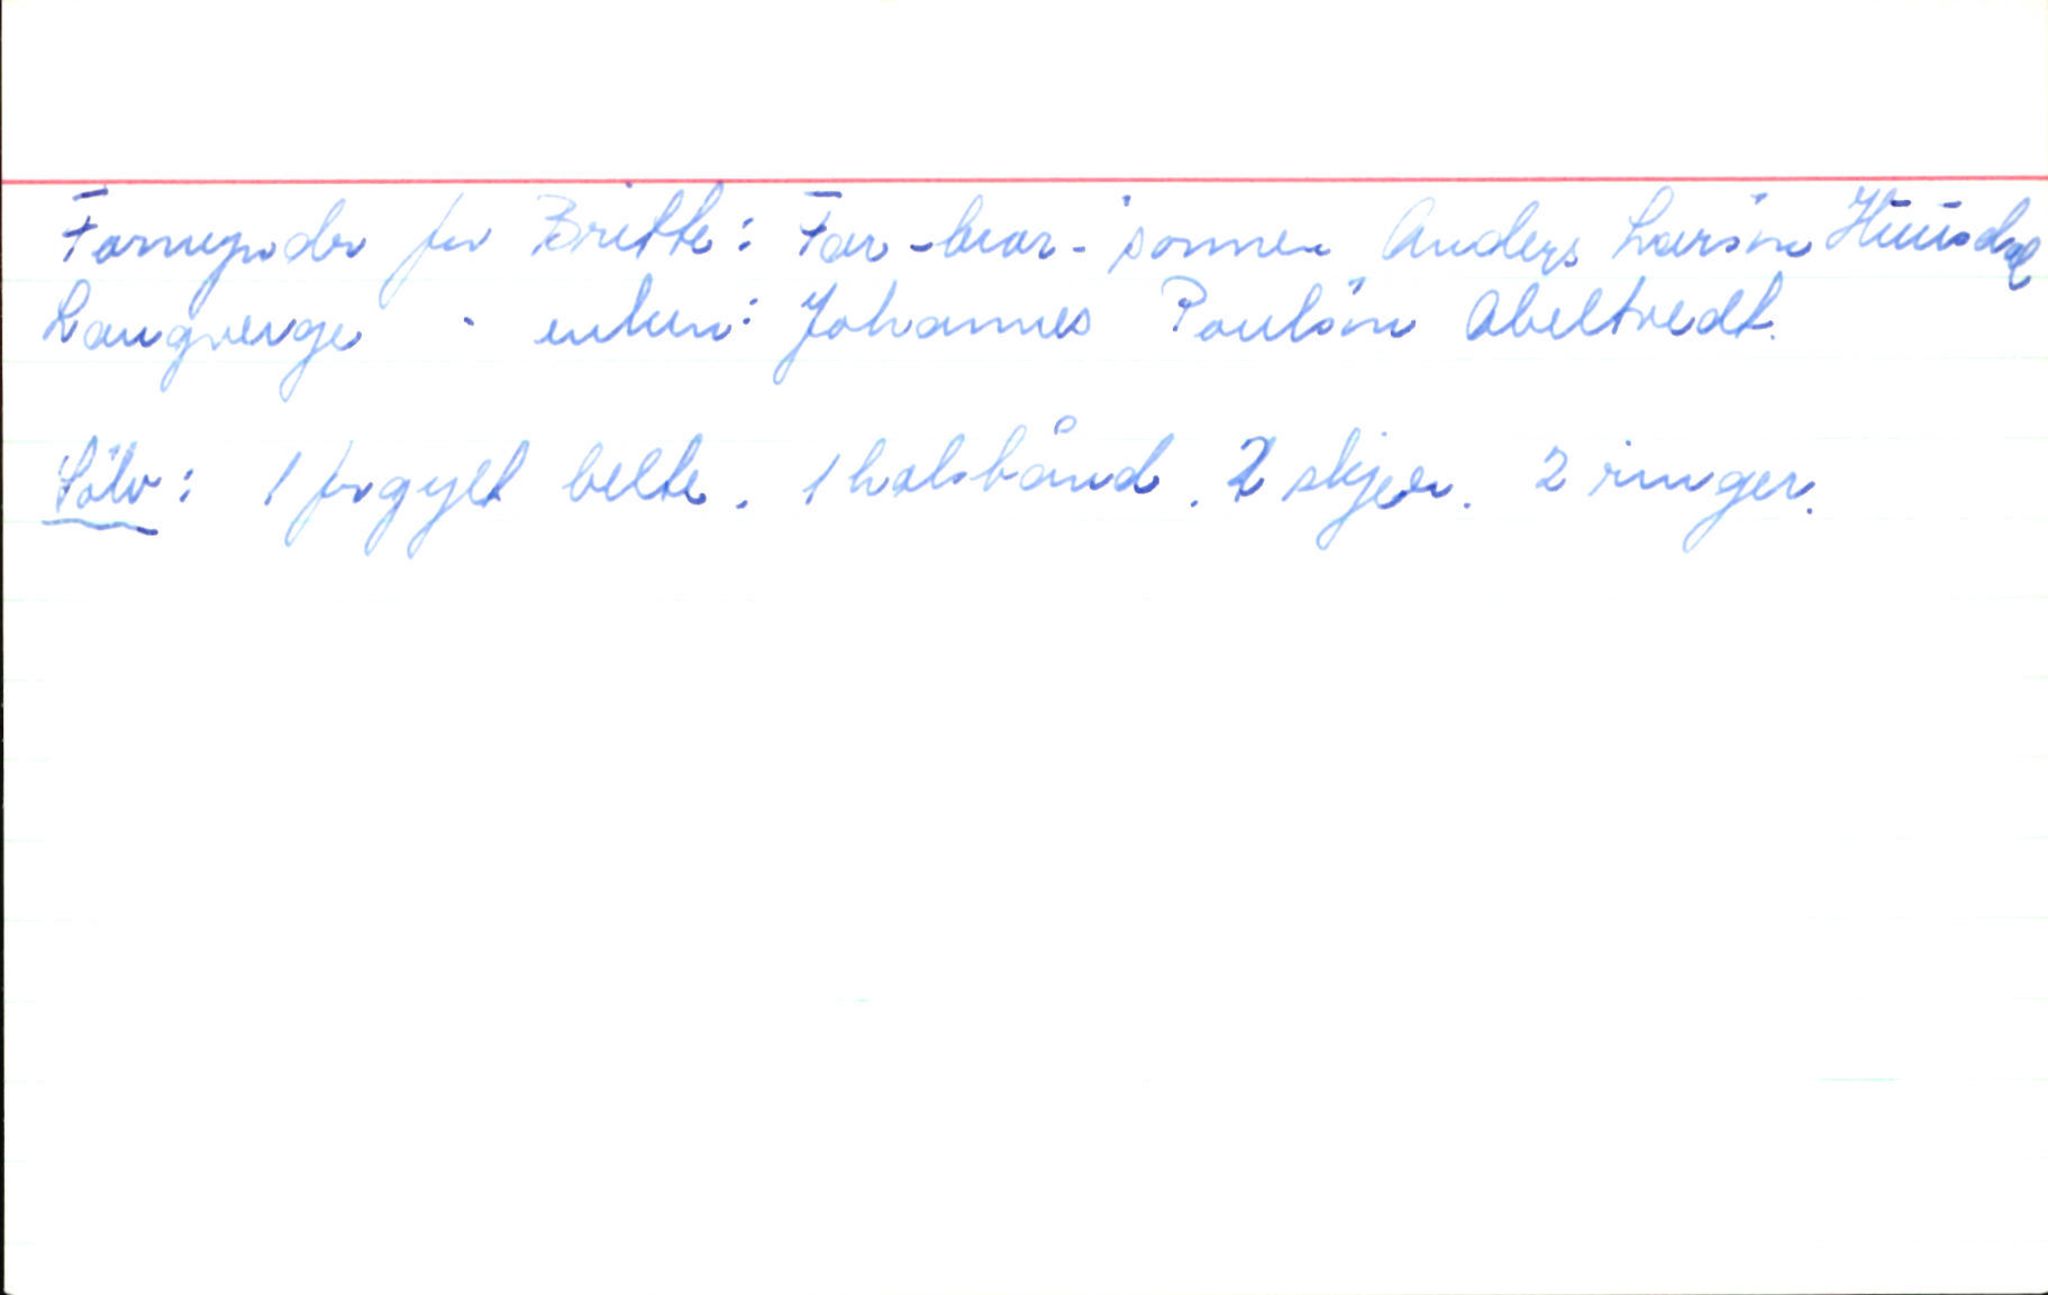 Formynder for Britte: Far-bror-sonnen Anders Larsin Huusdal
Laugverge - enken: Johannes Poulsin Abeltvedt.
Sölv: 1 forgylt belte. 1 halsbånd. 2 skjeer. 2 ringer.